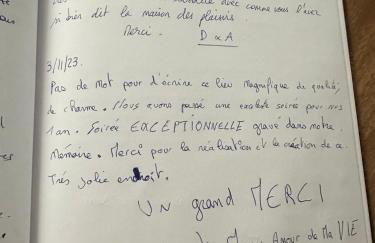 si bien dit la maison des plaisirs
Merci. D & A
3/11/23.
Pas de mot pour d'écrire ce lieu magnifique de qualité,
de charme. Nous avons passé une soirée pour nos
1 an. Soirée EXCEPTIONNELLE gravé dans notre
Mémoire. Merci pour la réalisation et la création de ce
Très jolie endroit.
UN grand MERCI
Amour de Ma VIE